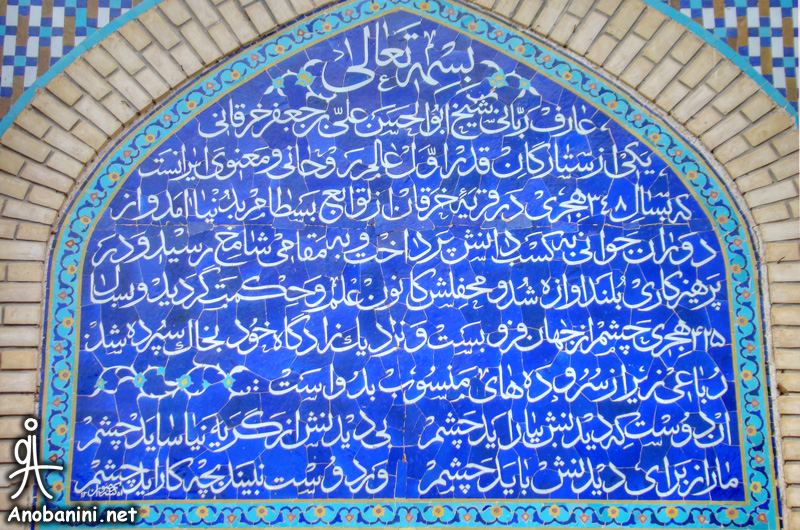 بسمه تعالی
عارف ربانی شیخ ابوالحسن علی بن جعفر خرقانی
یکی از ستارگان قدر اول عالم روحانی و معنوی ایرانست
که بسال ۳۴۸ هجری در قریه خرقان از توابع بسطام بدنیا آمد و از
دوران جوانی به کسب دانش پرداخت و به مقامی شامخ رسید و در
پرهیزکاری بلندآوازه شد و محفلش کانون علم و حکمت گردید و بسال
۴۲۵ هجری چشم از جهان فرو بست و نزدیک زادگاه خود بخاک سپرده شد.
رباعی زیر از سروده های منسوب بدو است:
آن دوست که دیدنش بیاراید چشم بی دیدنش از گریه نیاساید چشم
ما را ز برای دیدنش باید چشم ور دوست نبیند بچه کار آید چشم
Anobanini.net